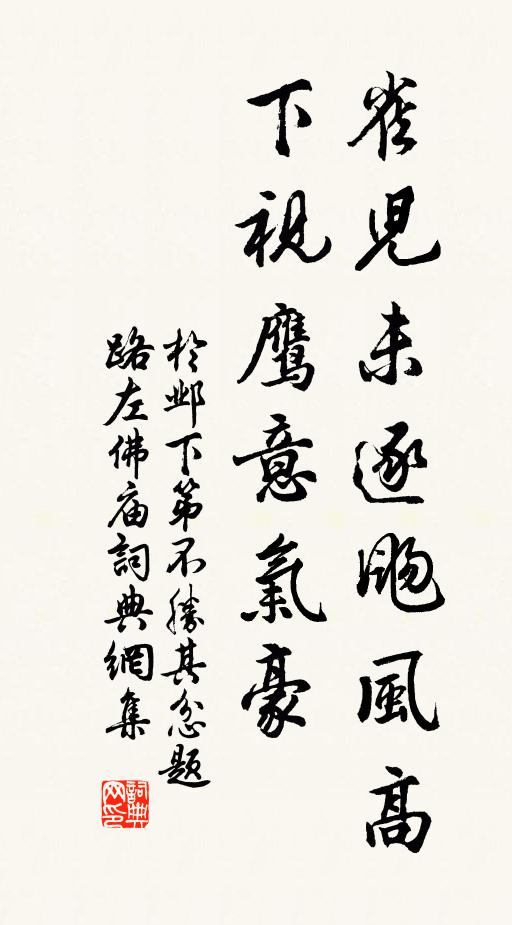 雀兒未逐飏風高
下視鷹意氣豪
於邺下第不勝其忿题
路左佛庙詞典網集
詞典网印